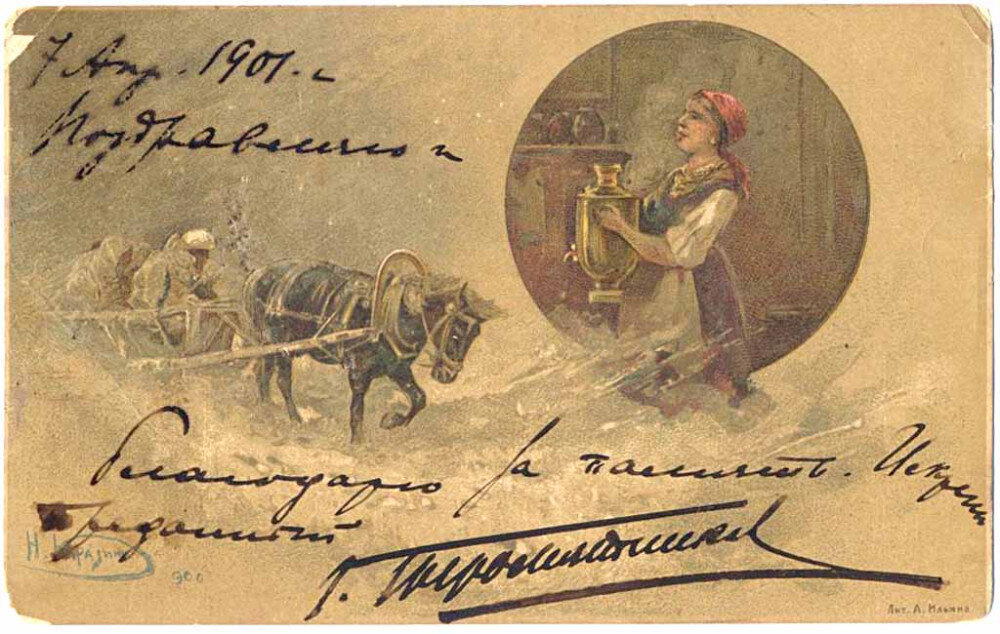 7 Апр. 1901. г.
Поздравляю и
благодарю за память. Искренно
преданный
Г.
Н. Каразин
900
Лит. А. Ильина